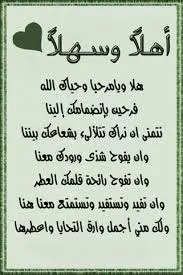 أهلاً وسهلاً
هلا ويامرحبا وحياك الله
فرحين بإنضمامك إلينا
نتمنى ان نراك تتلألئ بشعاعك بيننا
وان يفوح شذى ورودك معنا
وان تفوح رائحة قلمك العطر
وان تفيد وتستفيد وتستمتع معنا هنا
ولك مني أجمل وارق التحايا واعطرها